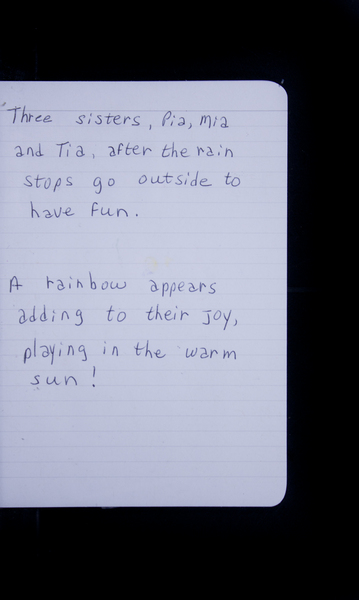 Three sisters, Pia, Mia
and Tia, after the rain
stops go outside to
have fun.
A rainbow appears
adding to their joy,
playing in the warm
sun!